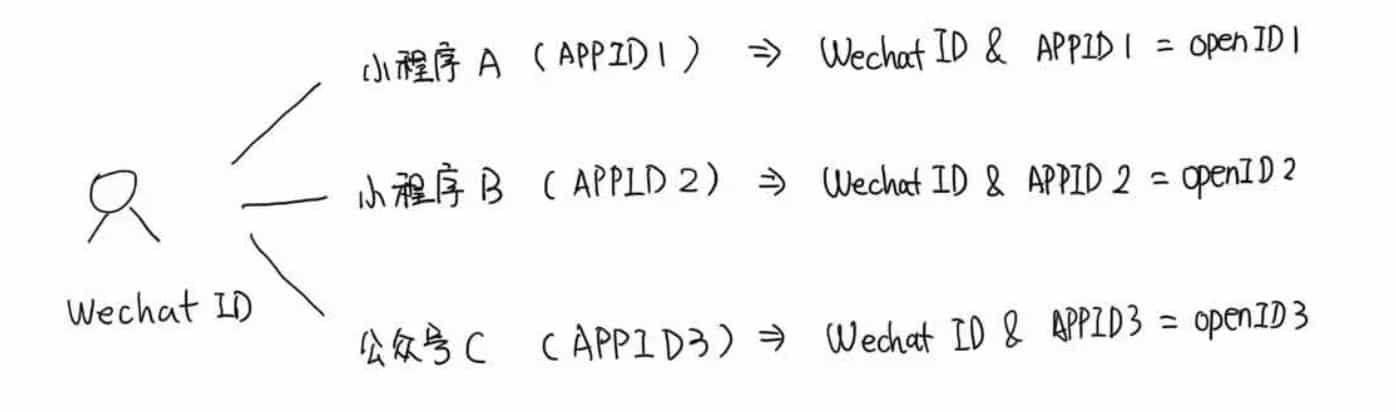 小程序 A （APPID1） ⇒ Wechat ID & APPID1 = openID1
小程序 B （APPID2） ⇒ Wechat ID & APPID2 = openID2
Wechat ID
公众号 C （APPID3） ⇒ Wechat ID & APPID3 = openID3